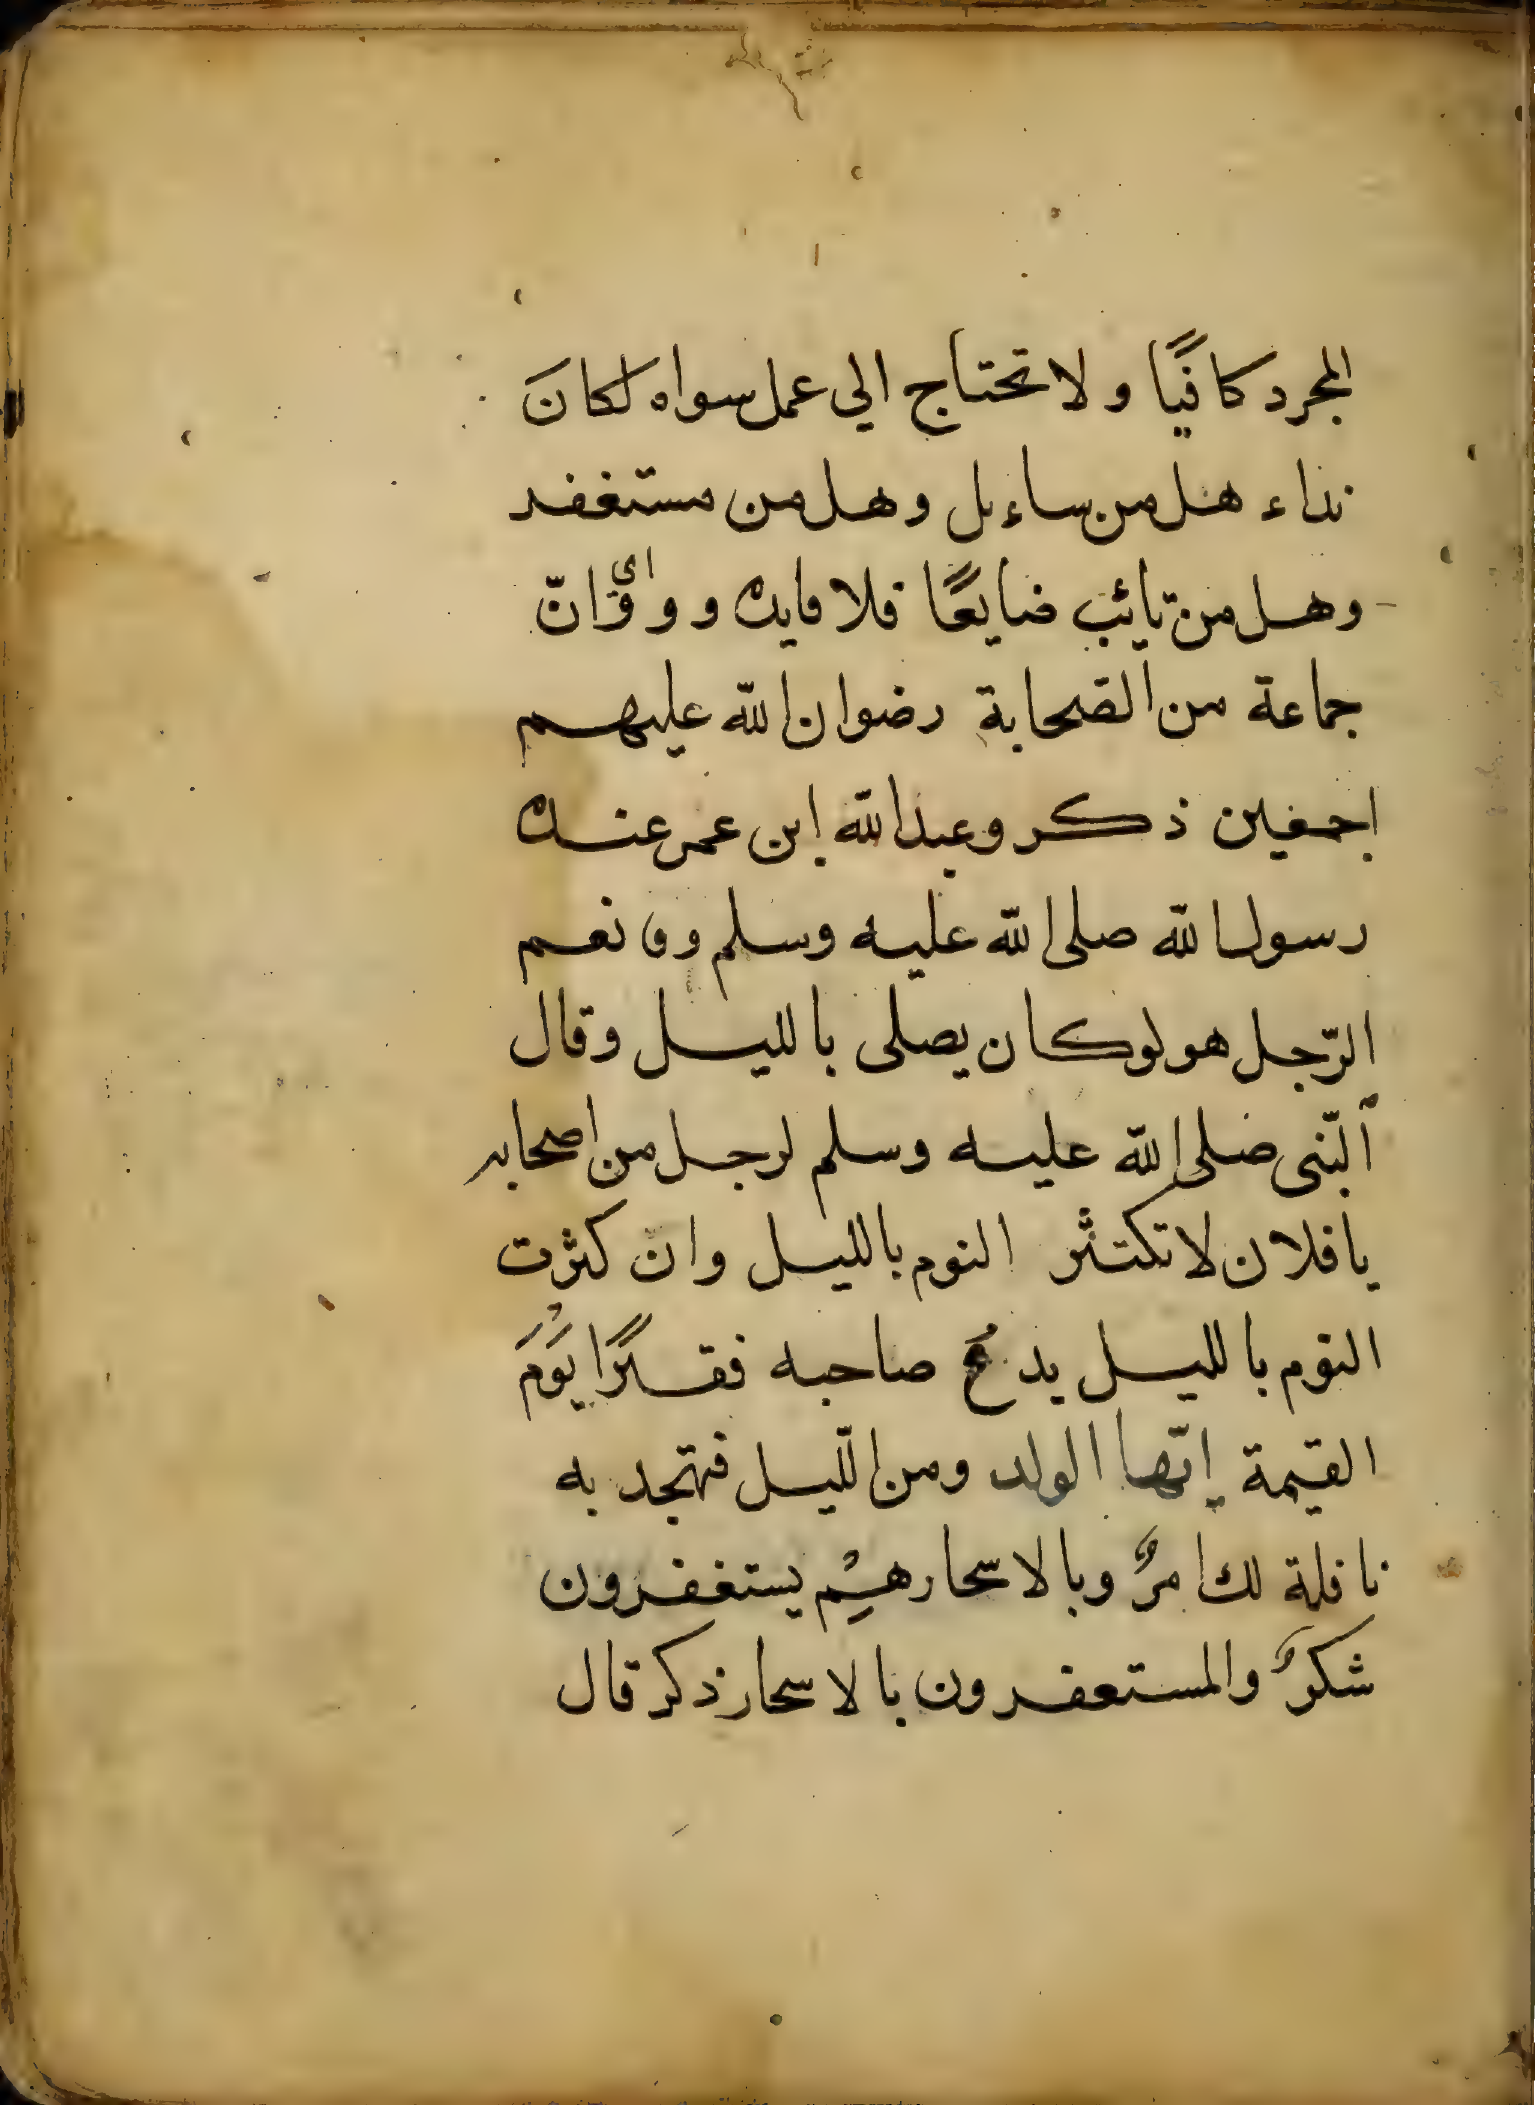 المجرد كافيًا ولا تحتاج الي عمل سواه لكانَ
نداء هل من ساءيل وهل من مستغفر
وهل من تائب ضايعًا فلا فايده و وؤ اى انّ
جماعة من الصّحابة رضوان اللّه عليهم
اجمعين ذكر وعبد اللّه ابن عمر عنده
رسول اللّه صلى اللّه عليه وسلم وق نعم
الرّجل هو لو كان يصلى بالليل وقال
النّبى صلى اللّه عليه وسلم لرجل من اصحابه
يا فلان لا تكتثر النوم بالليل وان كثرت
النوم بالليل يدع صاحبه فقيرًا يَومَ
القيمة ايّها الولد ومن الّليل فتهجد به
نافلة لك امرٌ وبالاسحار هم يستغفرون
شكرٌ والمستعفرون بالاسحار ذكر قال